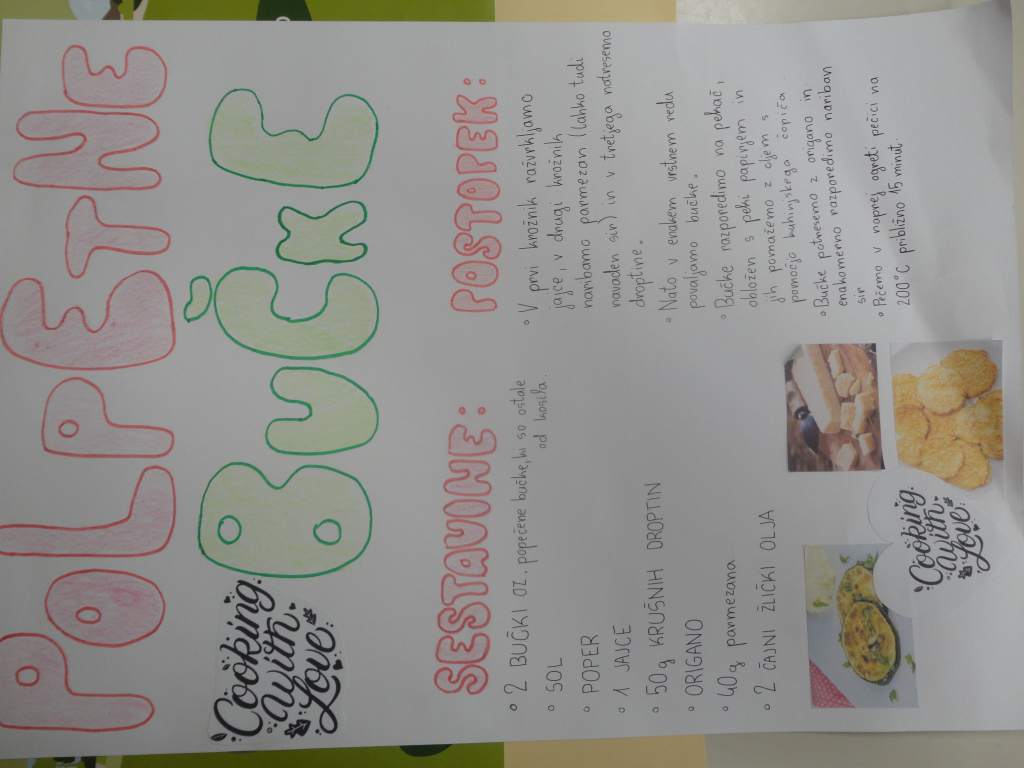 POLPETNE
BUČKE
Cooking
with
Love
SESTAVINE:
◦ 2 BUČKI OZ. popečene bučke, ki so ostale
od kosila.
◦ SOL
◦ POPER
◦ 1 JAJCE
◦ 50 g KRUŠNIH DROPTIN
◦ ORIGANO
◦ 40 g parmezana
◦ 2 ČAJNI ŽLIČKI OLJA
POSTOPEK:
◦ V prvi krožnik razvrkljamo
jajce, v drugi krožnik
naribamo parmezan (lahko tudi
navaden sir) in v tretjega natresemo
droptine.
◦ Nato v enakem vrstnem redu
povaljamo bučke.
◦ Bučke razporedimo na pekač,
obložen s peki papirjem in
jih pomažemo z oljem s
pomočjo kuhinjskega čopiča
◦ Bučke potresemo z origano in
enakomerno razporedimo nariban
sir
◦ Pečemo v naprej ogreti pečici na
200°C približno 15 minut.
Cooking
with
Love